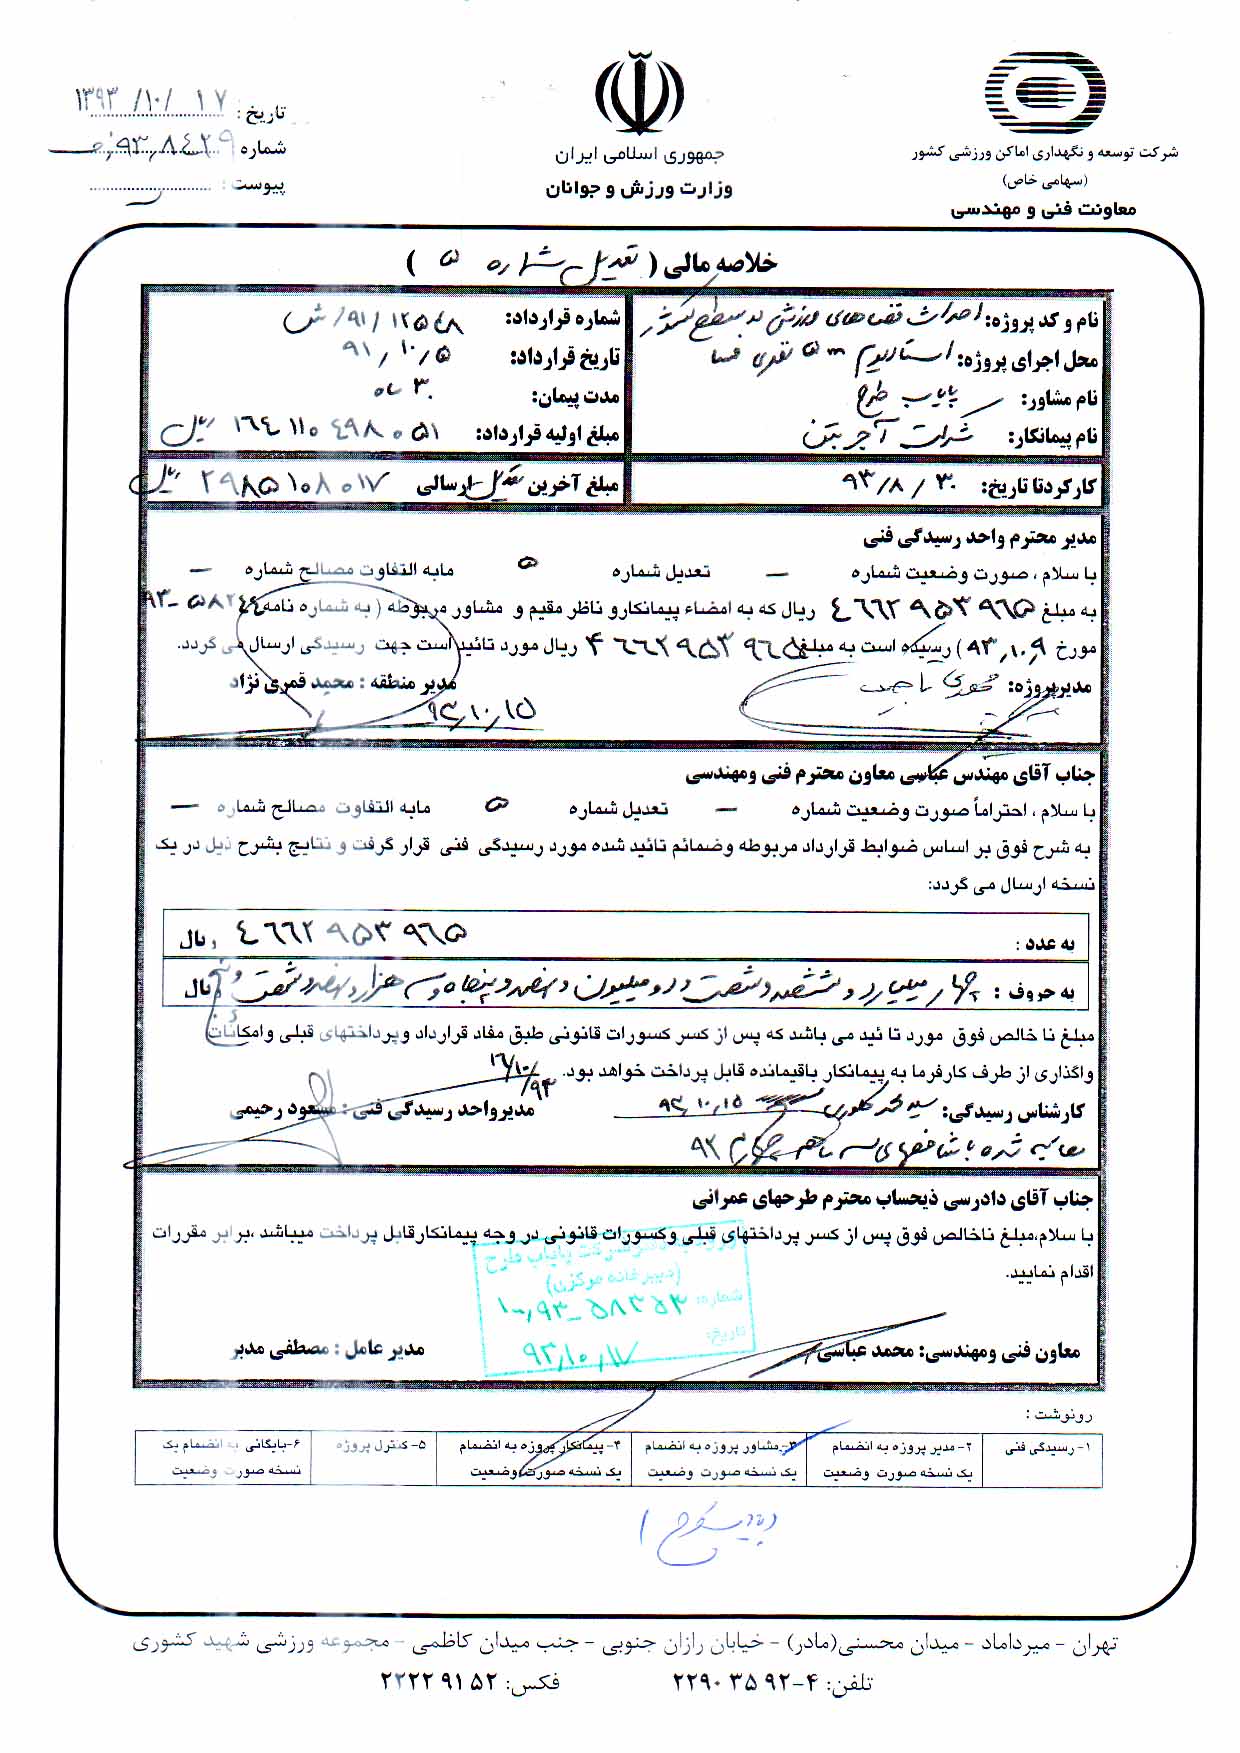 شرکت توسعه و نگهداری اماکن ورزشی کشور
(سهامی خاص)
معاونت فنی و مهندسی
جمهوری اسلامی ایران
وزارت ورزش و جوانان
تاریخ: ۱۳۹۳/۱۰/۱۷
شماره ۹۳٫۸۴۲۹
پیوست:
خلاصه مالی ( تعدیل شماره ۵ )
نام و کد پروژه: احداث فضاهای ورزشی در سطح کشور
محل اجرای پروژه: استادیوم ۵m تقوی فسا
نام مشاور: پایاب طرح
نام پیمانکار: شرکت آجر بتن
شماره قرارداد: ۹۱/۱۲۵۴۸/ش
تاریخ قرارداد: ۹۱٫۱۰٫۵
مدت پیمان: ۳۰ ماه
مبلغ اولیه قرارداد: ۱۶۴ ۱۱۰ ۴۹۸ ۰۵۱ ریال
کارکرد تا تاریخ: ۹۳/۸/۳۰
مبلغ آخرین تعدیل ارسالی ۲۹۸۵ ۱۰۸ ۰۱۷ ریال
مدیر محترم واحد رسیدگی فنی
با سلام ، صورت وضعیت شماره — تعدیل شماره ۵ مابه التفاوت مصالح شماره —
به مبلغ ۴ ۶۶۲ ۹۵۳ ۹۶۵ ریال که به امضاء پیمانکار و ناظر مقیم و مشاور مربوطه ( به شماره نامه ۹۳-۵۸۲۴۴
مورخ ۹۳٫۱۰٫۹ ) رسیده است به مبلغ ۴ ۶۶۲ ۹۵۳ ۹۶۵ ریال مورد تائید است جهت رسیدگی ارسال می گردد.
مدیرپروژه: مدیر منطقه : محمد قمری نژاد
۹۳٫۱۰٫۱۵
جناب آقای مهندس عباسی معاون محترم فنی ومهندسی
با سلام ، احتراماً صورت وضعیت شماره — تعدیل شماره ۵ مابه التفاوت مصالح شماره —
به شرح فوق بر اساس ضوابط قرارداد مربوطه وضمائم تائید شده مورد رسیدگی فنی قرار گرفت و نتایج بشرح ذیل در یک
نسخه ارسال می گردد:
به عدد : ۴ ۶۶۲ ۹۵۳ ۹۶۵ ریال
به حروف : چهار میلیارد و ششصد و شصت و دو میلیون و نهصد و پنجاه و سه هزار و نهصد و شصت و پنج ریال
مبلغ نا خالص فوق مورد تا ئید می باشد که پس از کسر کسورات قانونی طبق مفاد قرارداد وپرداختهای قبلی وامکانات
واگذاری از طرف کارفرما به پیمانکار باقیمانده قابل پرداخت خواهد بود. ۹۳/۱۰/۱۶
کارشناس رسیدگی: ۹۳٫۱۰٫۱۵ مدیرواحد رسیدگی فنی : مسعود رحیمی
محاسبه شده با شاخصهای سه ماهه چهارم ۹۲
جناب آقای دادرسی ذیحساب محترم طرحهای عمرانی
با سلام،مبلغ ناخالص فوق پس از کسر پرداختهای قبلی وکسورات قانونی در وجه پیمانکار قابل پرداخت میباشد ،برابر مقررات
اقدام نمایید.
پایاب طرح
(دبیرخانه مرکزی)
شماره: ۱۰٫۹۳-۵۸۳۵۳
تاریخ: ۹۳٫۱۰٫۱۷
معاون فنی ومهندسی: محمد عباسی مدیر عامل : مصطفی مدبر
رونوشت :
۱- رسیدگی فنی
۲- مدیر پروژه به انضمام یک نسخه صورت وضعیت
۳- مشاور پروژه به انضمام یک نسخه صورت وضعیت
۴- پیمانکار پروژه به انضمام یک نسخه صورت وضعیت
۵- کنترل پروژه
۶-بایگانی به انضمام یک نسخه صورت وضعیت
تهران - میرداماد - میدان محسنی(مادر) - خیابان رازان جنوبی - جنب میدان کاظمی - مجموعه ورزشی شهید کشوری
تلفن: ۴-۲۲۹۰۳۵۹۲ فکس: ۲۲۲۲۹۱۵۲